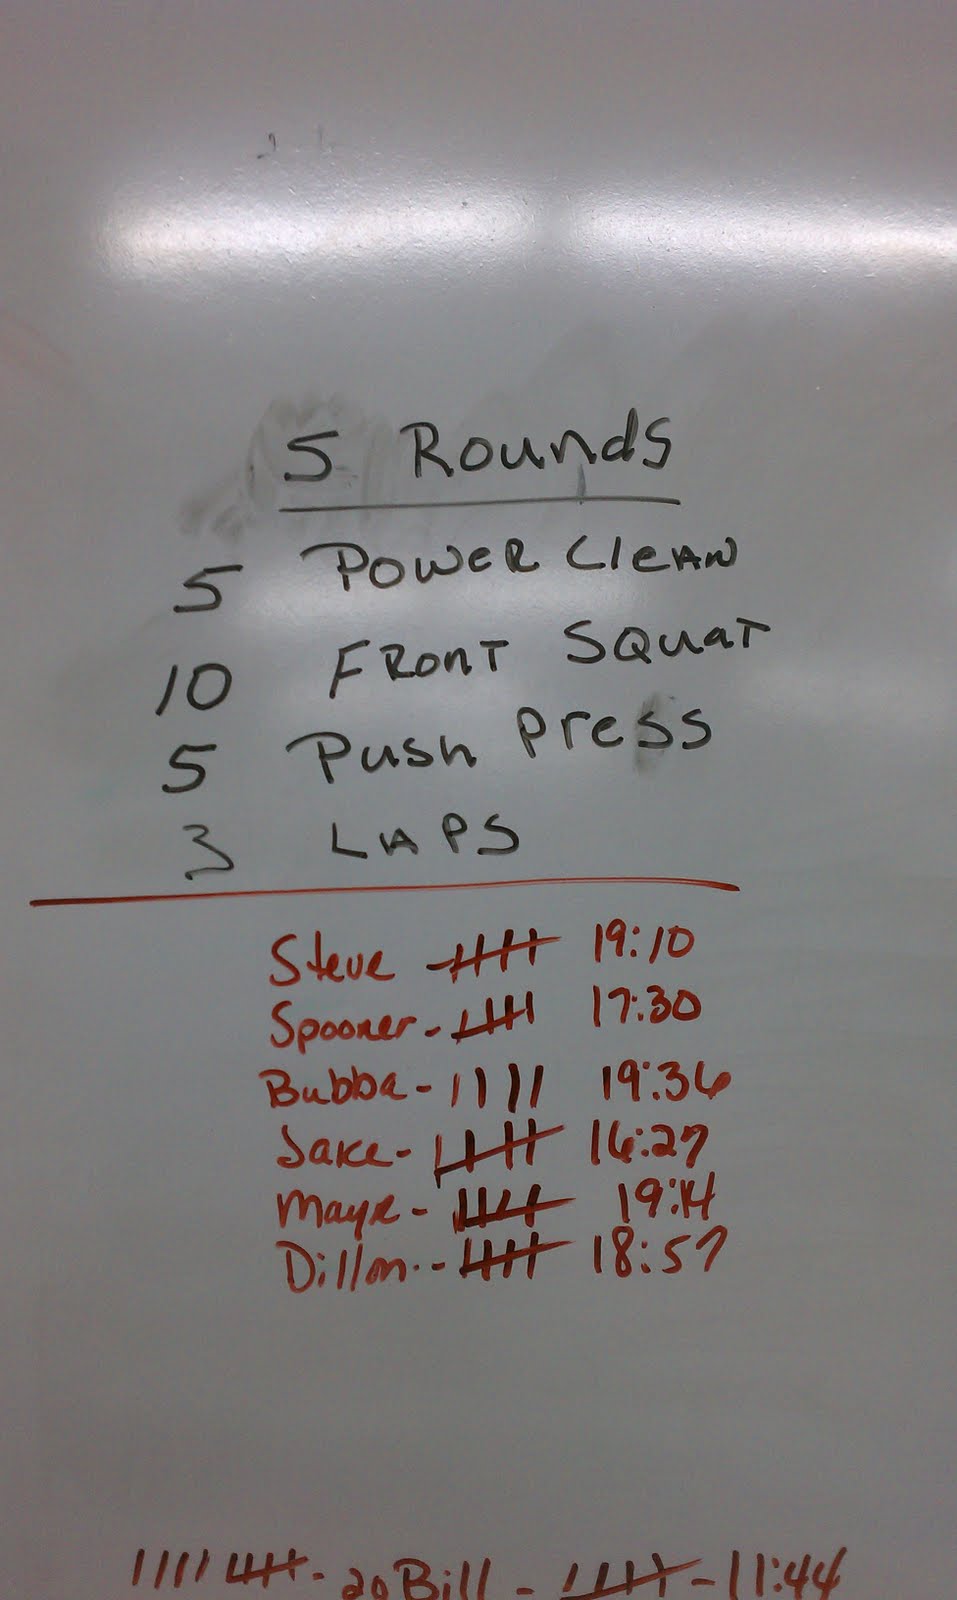 5 Rounds
5 Power Clean
10 Front Squat
5 Push Press
3 Laps
Steve - 19:10
Spooner - 17:30
Bubba - |||| 19:36
Jake - 16:27
Maye - 19:14
Dillon - 18:57
20 Bill - 11:44